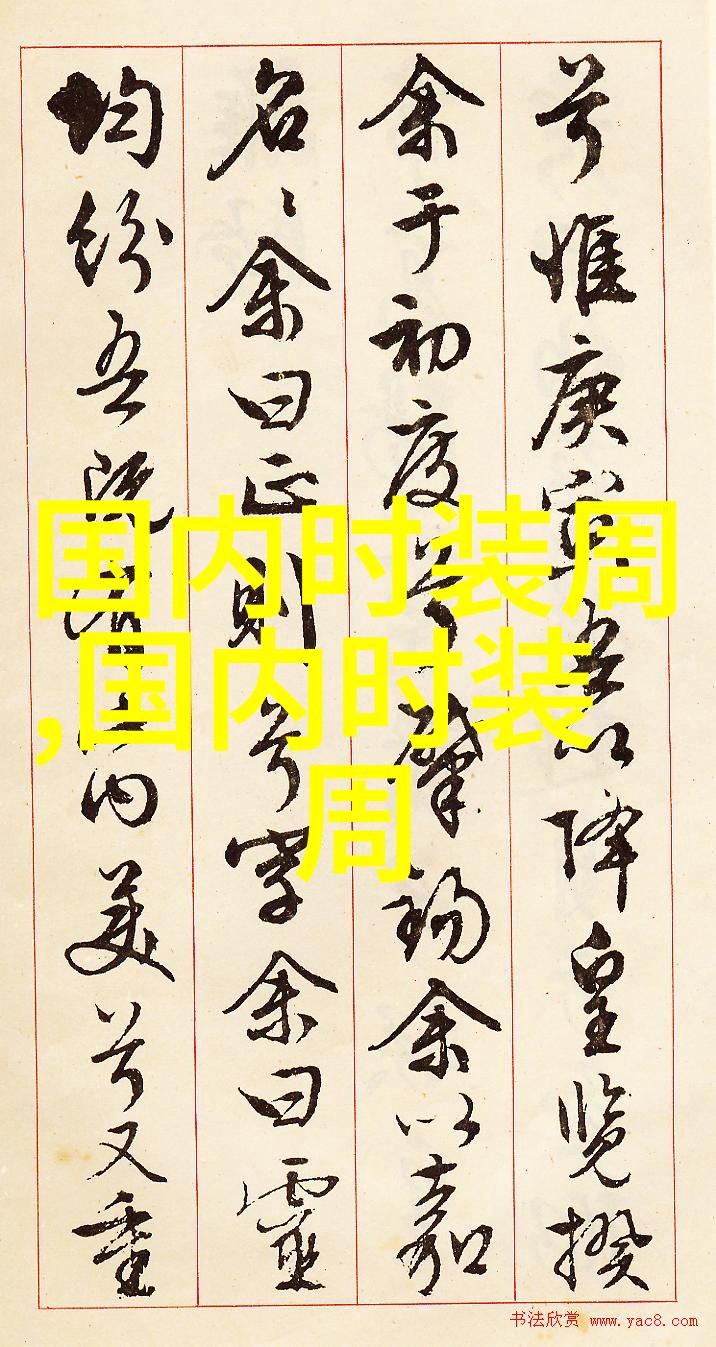 兮惟庚寅吾以降皇览揆
余于初度兮肇锡余以嘉
名〻余曰正则兮字余曰靈
均纷吾既有此内美兮又重
国内时装周
,国内时装
周
书法欣赏 www.yac8.com